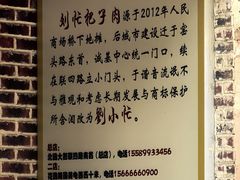 刘忙杞子肉源于2012年人民
商场桥下地摊，后城市建设迁于窑
头路东首，诚基中心统一门口，续
在联四路立小门头，于谐音流氓不
与雅观和考虑长期发展与商标保护
所含泪改为劉小忙。
总店：
电话15589933456
二店：
电话15666660900